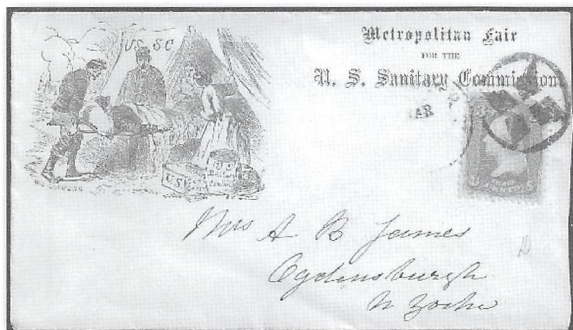 U.S. SC
Metropolitan Fair
FOR THE
U. S. Sanitary Commission
AR
U.S.
Mrs A B James
Ogdensburgh
N Yorke